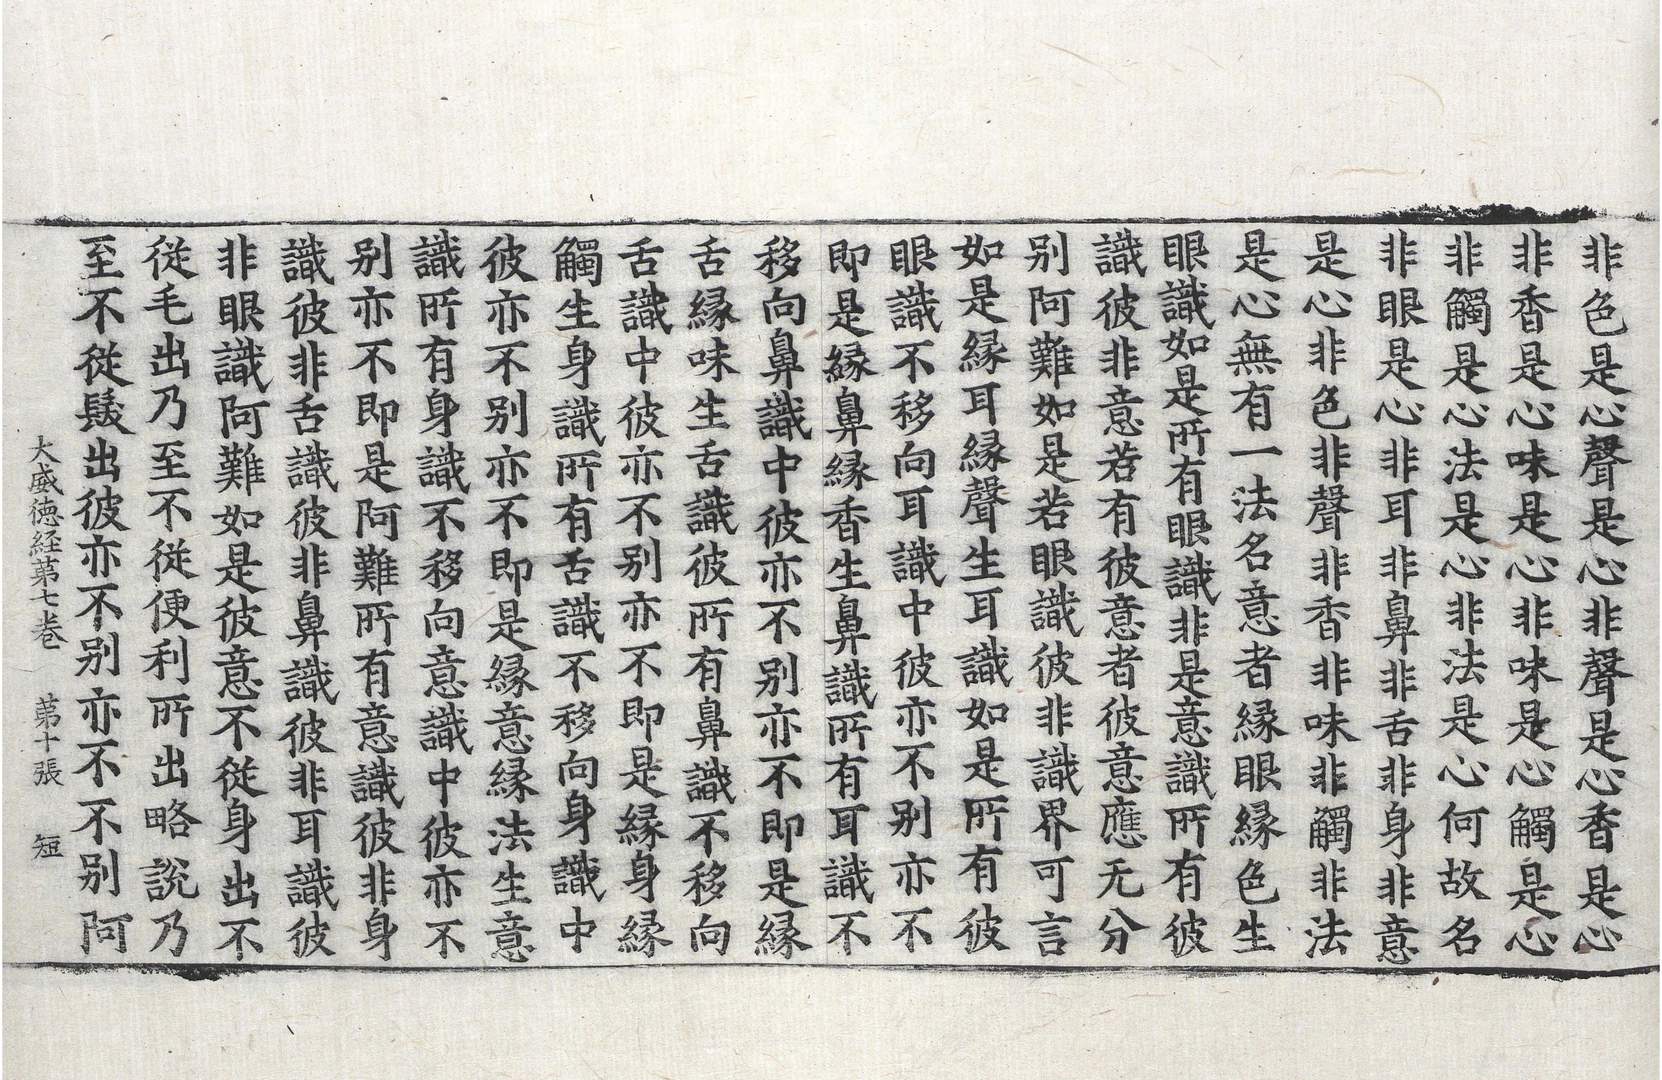 非色是心聲是心非聲是心香是心
非香是心味是心非味是心觸是心
非觸是心法是心非法是心何故名
非眼是心非耳非鼻非舌非身非意
是心非色非聲非香非味非觸非法
是心無有一法名意者縁眼縁色生
眼識如是所有眼識非是意識所有彼
識彼非意若有彼意者彼意應无分
别阿難如是若眼識彼非識界可言
如是縁耳縁聲生耳識如是所有彼
眼識不移向耳識中彼亦不别亦不
即是縁鼻縁香生鼻識所有耳識不
移向鼻識中彼亦不别亦不即是縁
舌縁味生舌識彼所有鼻識不移向
舌識中彼亦不别亦不即是縁身縁
觸生身識所有舌識不移向身識中
彼亦不别亦不即是縁意縁法生意
識所有身識不移向意識中彼亦不
别亦不即是阿難所有意識彼非身
識彼非舌識彼非鼻識彼非耳識彼
非眼識阿難如是彼意不從身出不
從毛出乃至不從便利所出略說乃
至不從髮出彼亦不别亦不不别阿
大威徳経第七巻 第十張 短